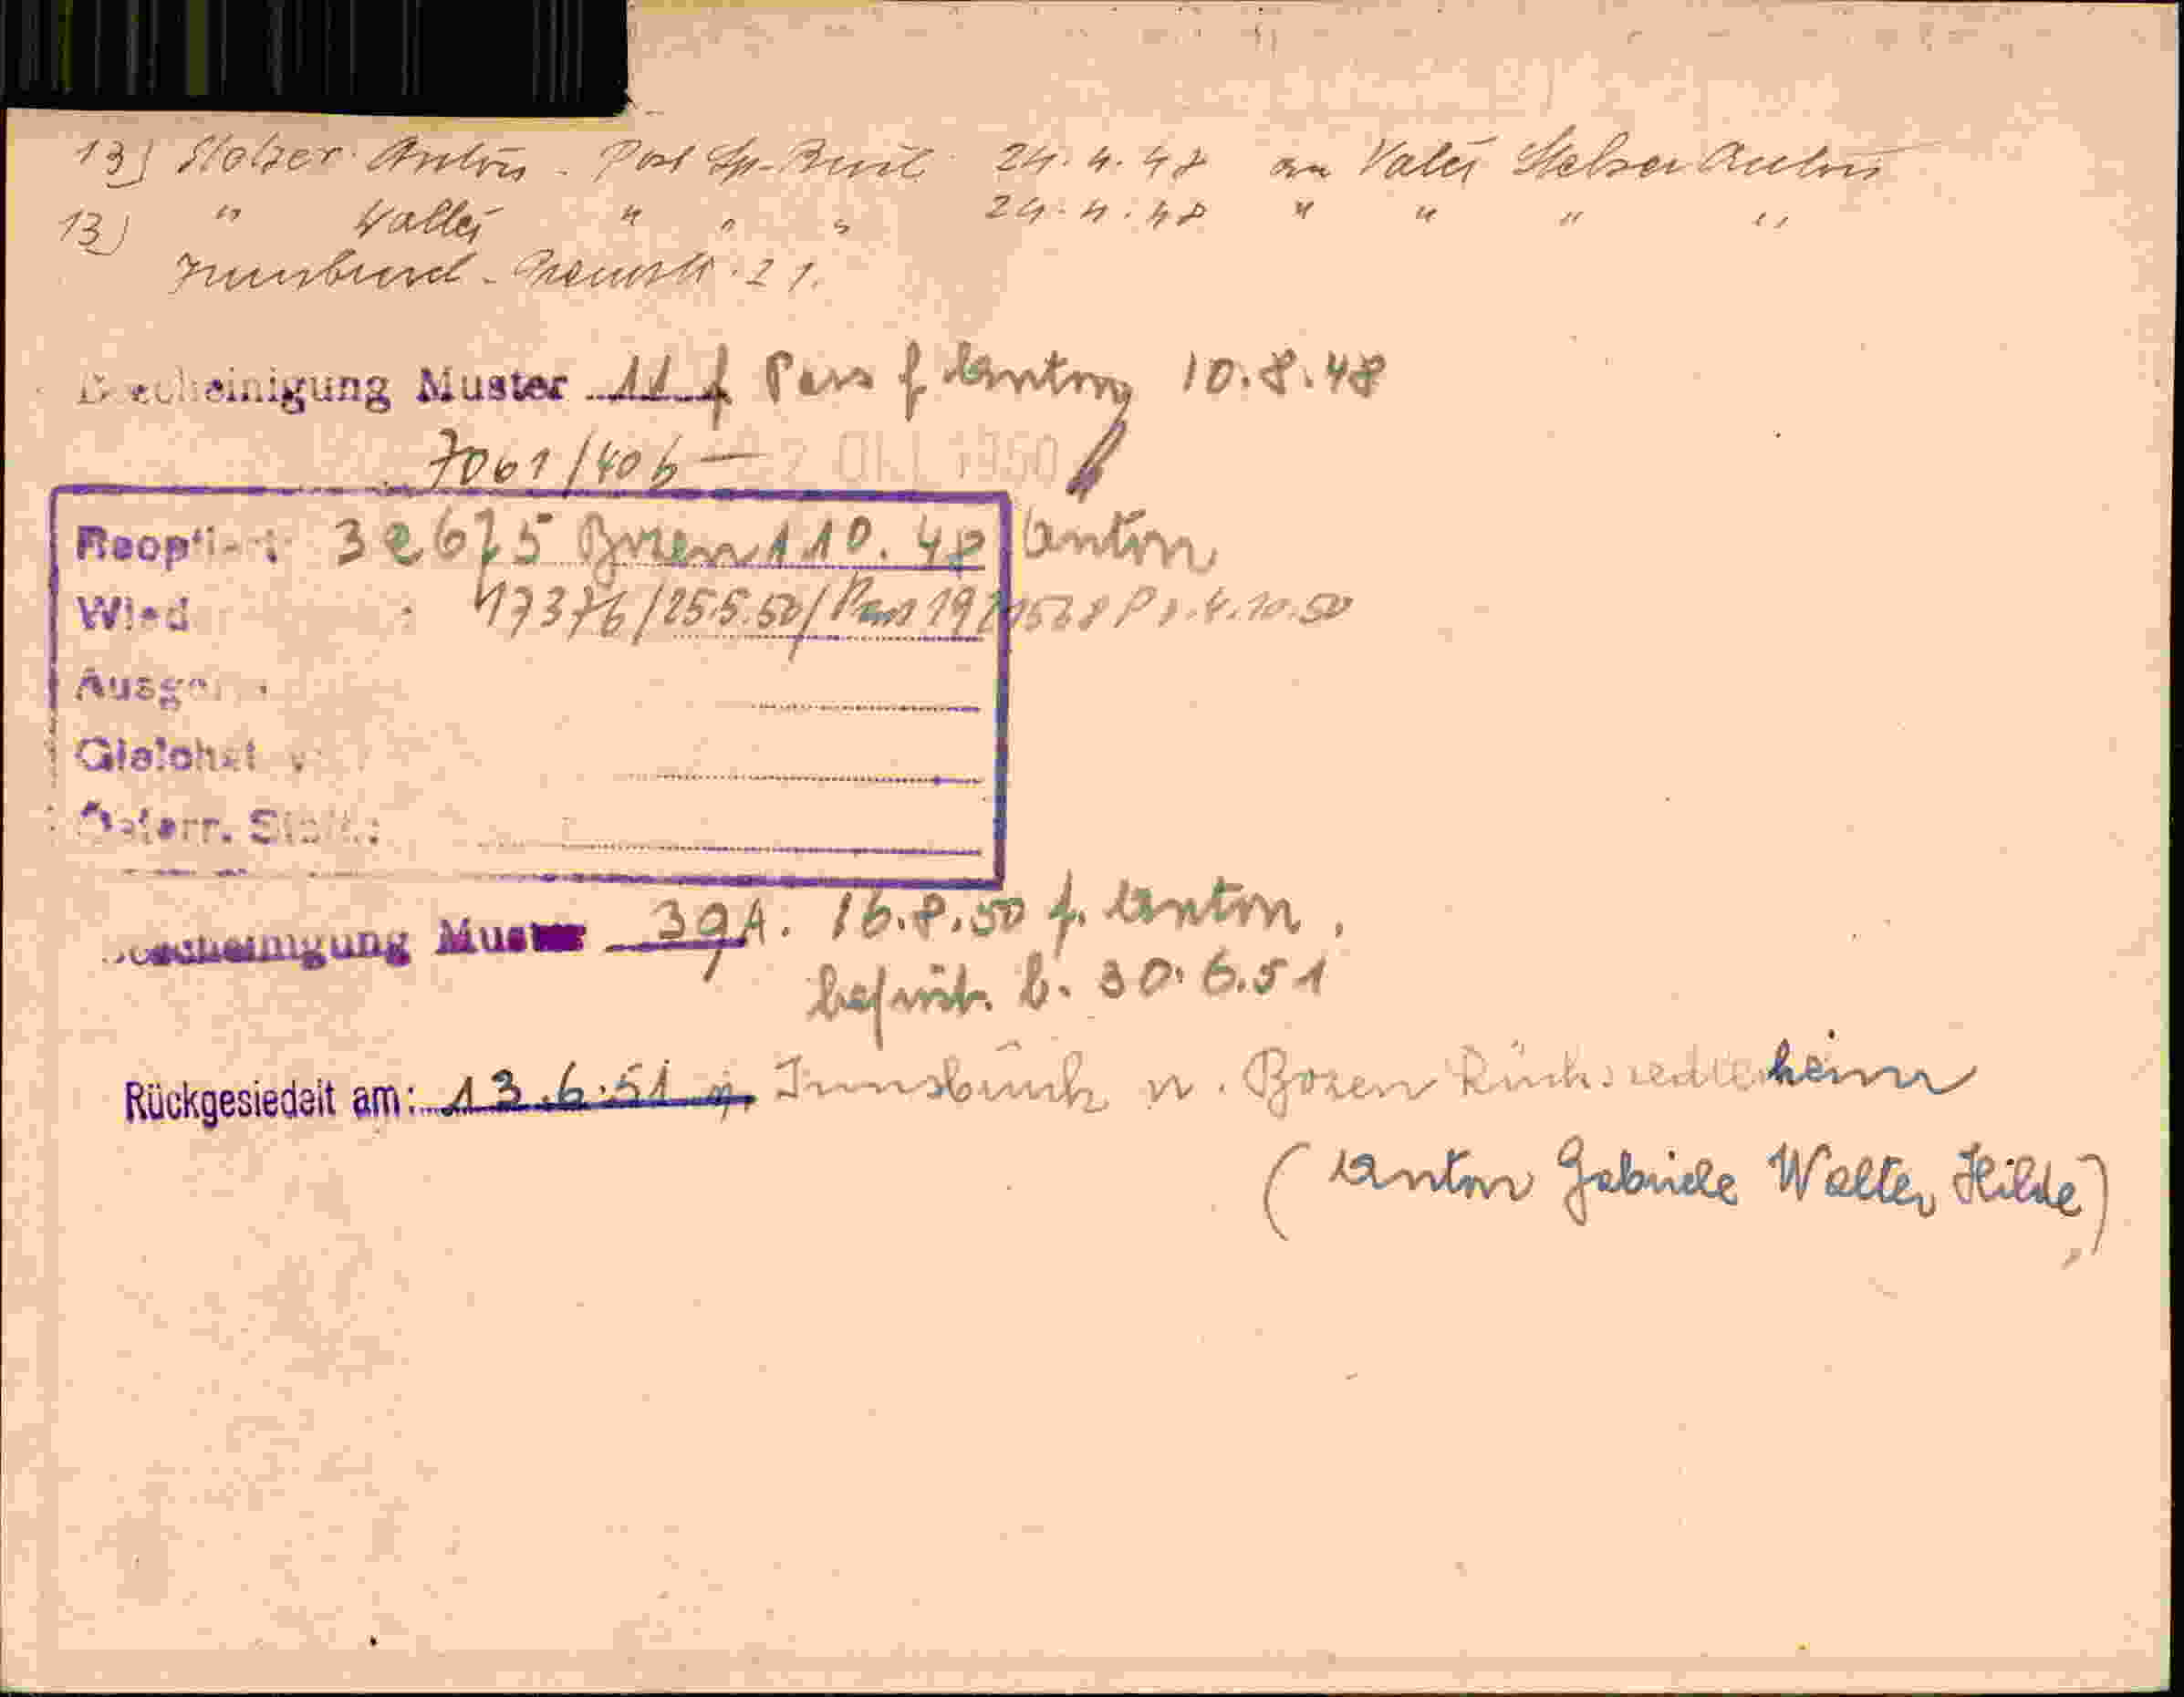 13) Stolzer Anton - Post Sp.-Buch 24.4.48 an Vater Stelzer Anton
13) " Walter " " " 24.4.48 " " " "
Innsbruck - 21.
Bescheinigung Muster 11 f Pass f Anton 10.8.48
7061/406 — 2 OKT 1950
Reoptiert: 32675 Bozen 1.10.48 Anton
Wied : 17376/25.5.50/Pass 1971528 P v. 4.10.50
Ausge
Gleichst
Österr. Stbg.:
Bescheinigung Muster 39A. 16.8.50 f. Anton,
befrist. b. 30.6.51
Rückgesiedelt am: 13.6.51 v. Innsbruck n. Bozen Rücksiedlerheim
(Anton Gabriele Walter, Hilde)